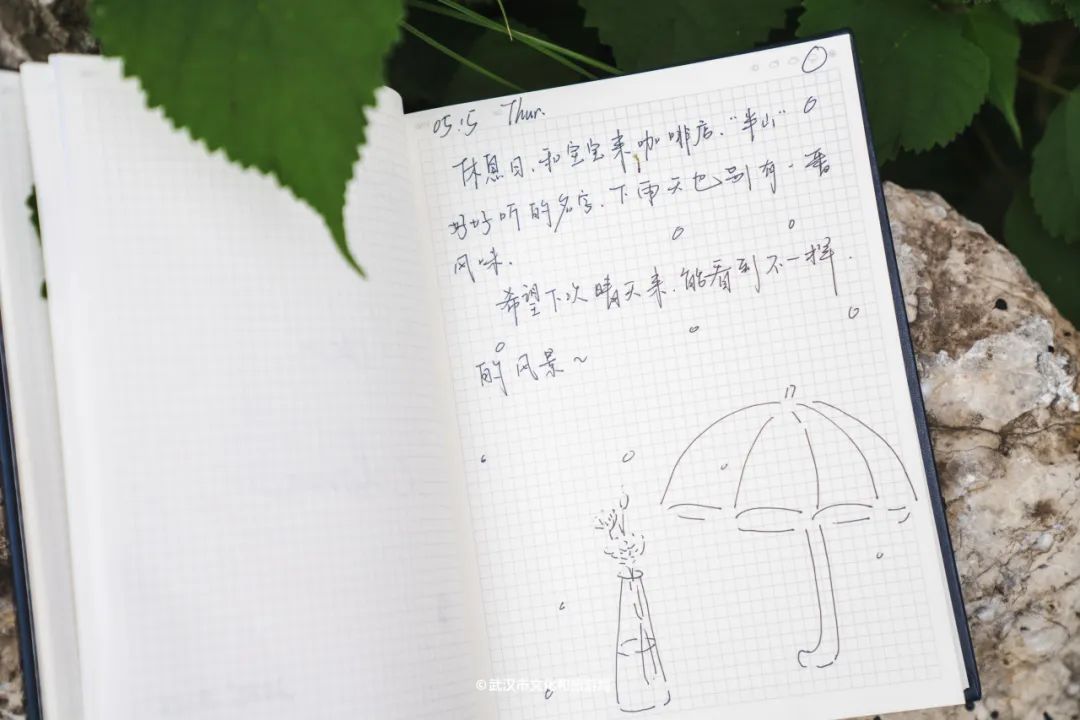 05.15 Thur.
休息日、和宝宝来咖啡店."半山"
好好听的名字、下雨天也别有一番
风味.
希望下次晴天来.能看到不一样.
的风景~
©武汉市文化和旅游局